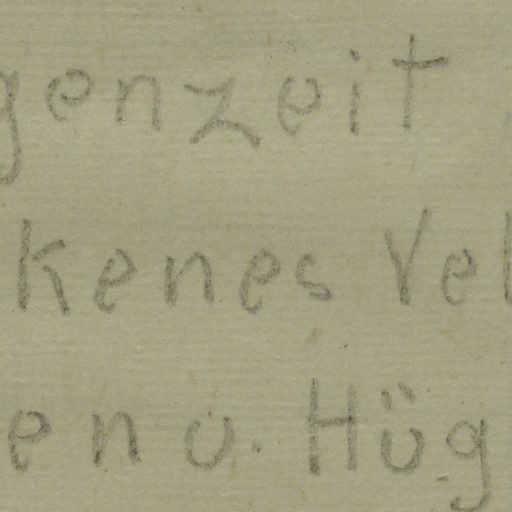 genzeit
kenes Vel
en u. Hüg